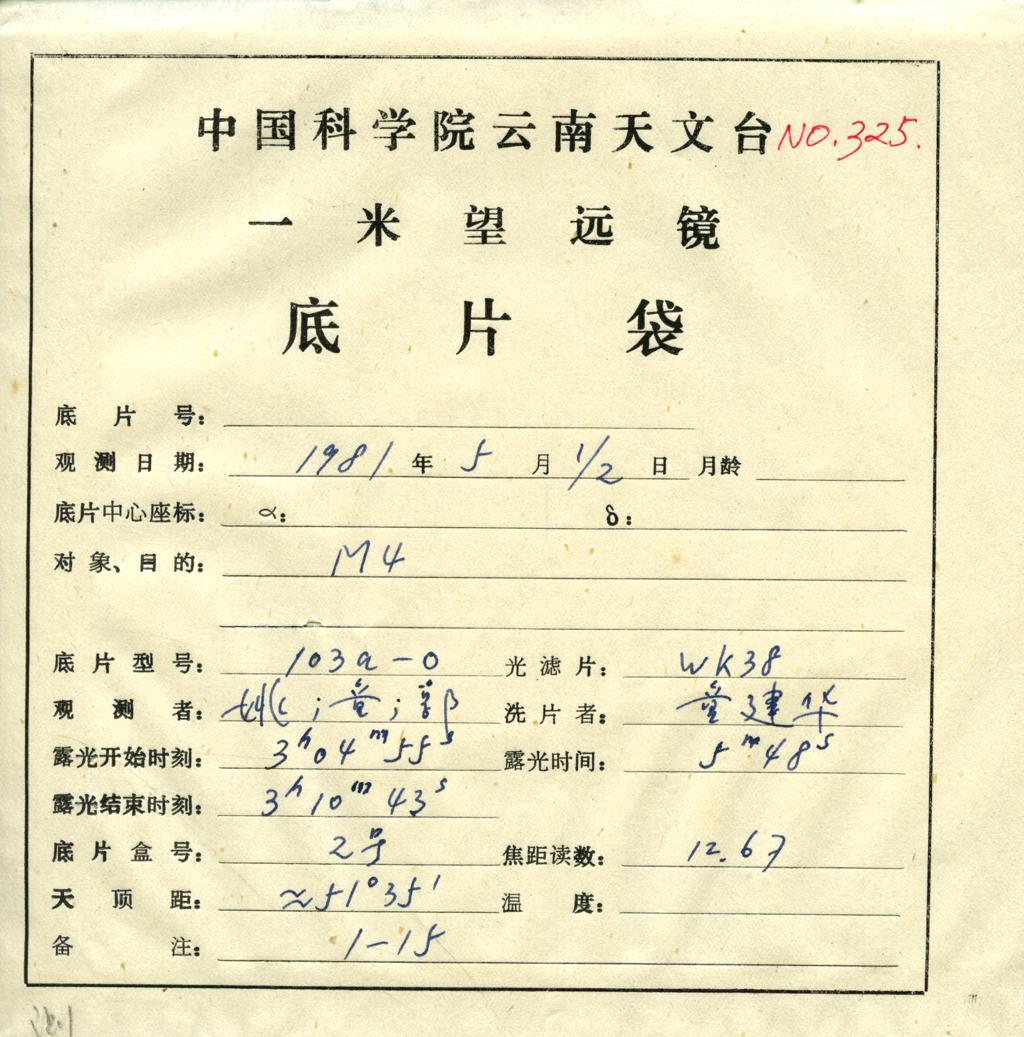 中国科学院云南天文台 NO.325.
一米望远镜
底片袋
底片号:
观测日期: 1981年5月1/2日 月龄
底片中心座标: α: δ:
对象、目的: M4
底片型号: 103a-O 光滤片: WK38
观测者: ;萱;郭 洗片者: 萱建华
露光开始时刻: 3h04m55s 露光时间: 5m48s
露光结束时刻: 3h10m43s
底片盒号: 2号 焦距读数: 12.67
天顶距: ≈51°35′ 温度:
备注: 1-15